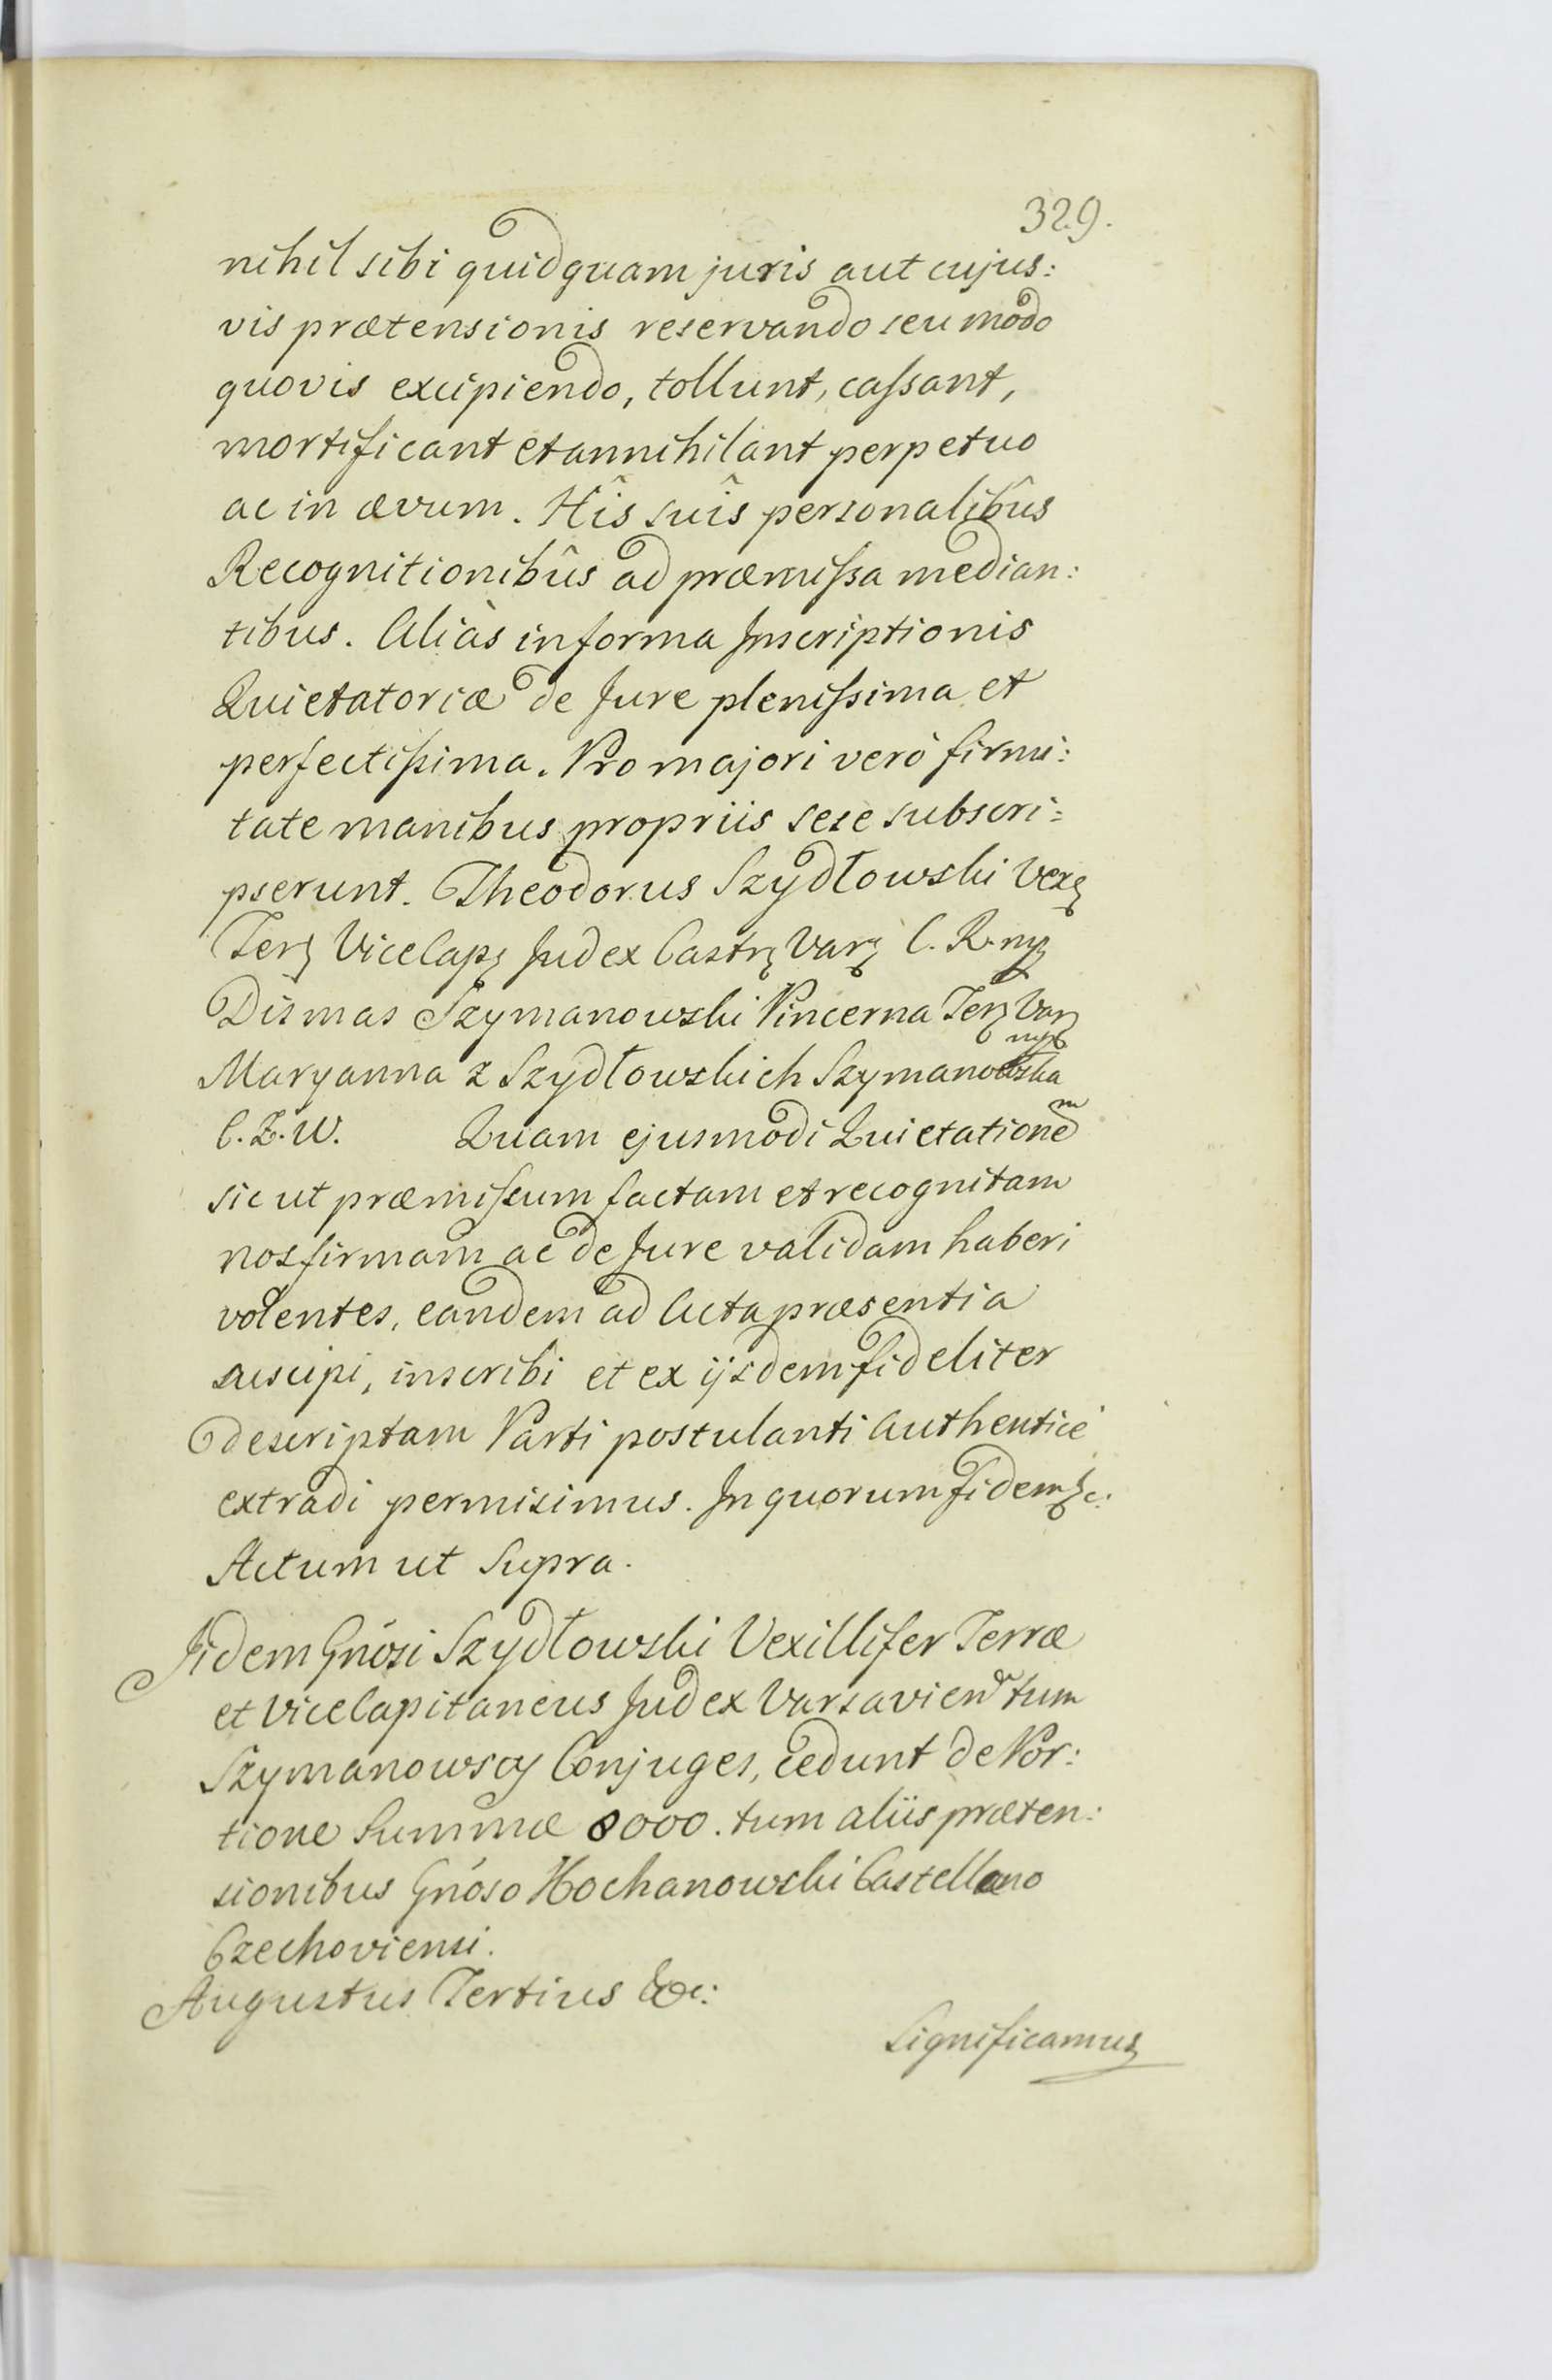 329.
nihil sibi quidquam juris aut cujus:
vis prætensionis reservando seu modo
quovis excipiendo, tollunt, cassant,
mortificant et annihilant perpetuo
ac in ævum. Hîs suîs personalibûs
Recognitionibûs ad præmissa median:
tibus. Aliàs in forma Inscriptionis
Quietatoriæ de Jure plenissima et
perfectissima. Pro majori verò firmi:
tate manibus propriis sese subscri:
pserunt. Theodorus Szydłowski Vex
Ter Vice Cap Judex Castr Var C. R. mp
Dismas Szymanowski Pincerna Ter Var
mp
Maryanna z Szydłowskich Szymanowska
C. Z. W. Quam ejusmodi Quietationem
sic ut præmissum factam et recognitam
nos firmam ac de Jure validam haberi
volentes, eandem ad Acta præsentia
suscipi, inscribi et ex ijsdem fideliter
descriptam Parti postulanti Authenticè
extradi permisimus. In quorum fidem &c:
Actum ut Supra.
Iidem Gnósi Szydłowski Vexillifer Terræ
et Vice Capitaneus Judex Varsavien tum
Szymanowscy Conjuges, cedunt de Por:
tione Summæ 8000. tum aliis præten:
sionibus Gnóso Kochanowski Castellano
Czechoviensi.
Augustus Tertius &c:
Significamus